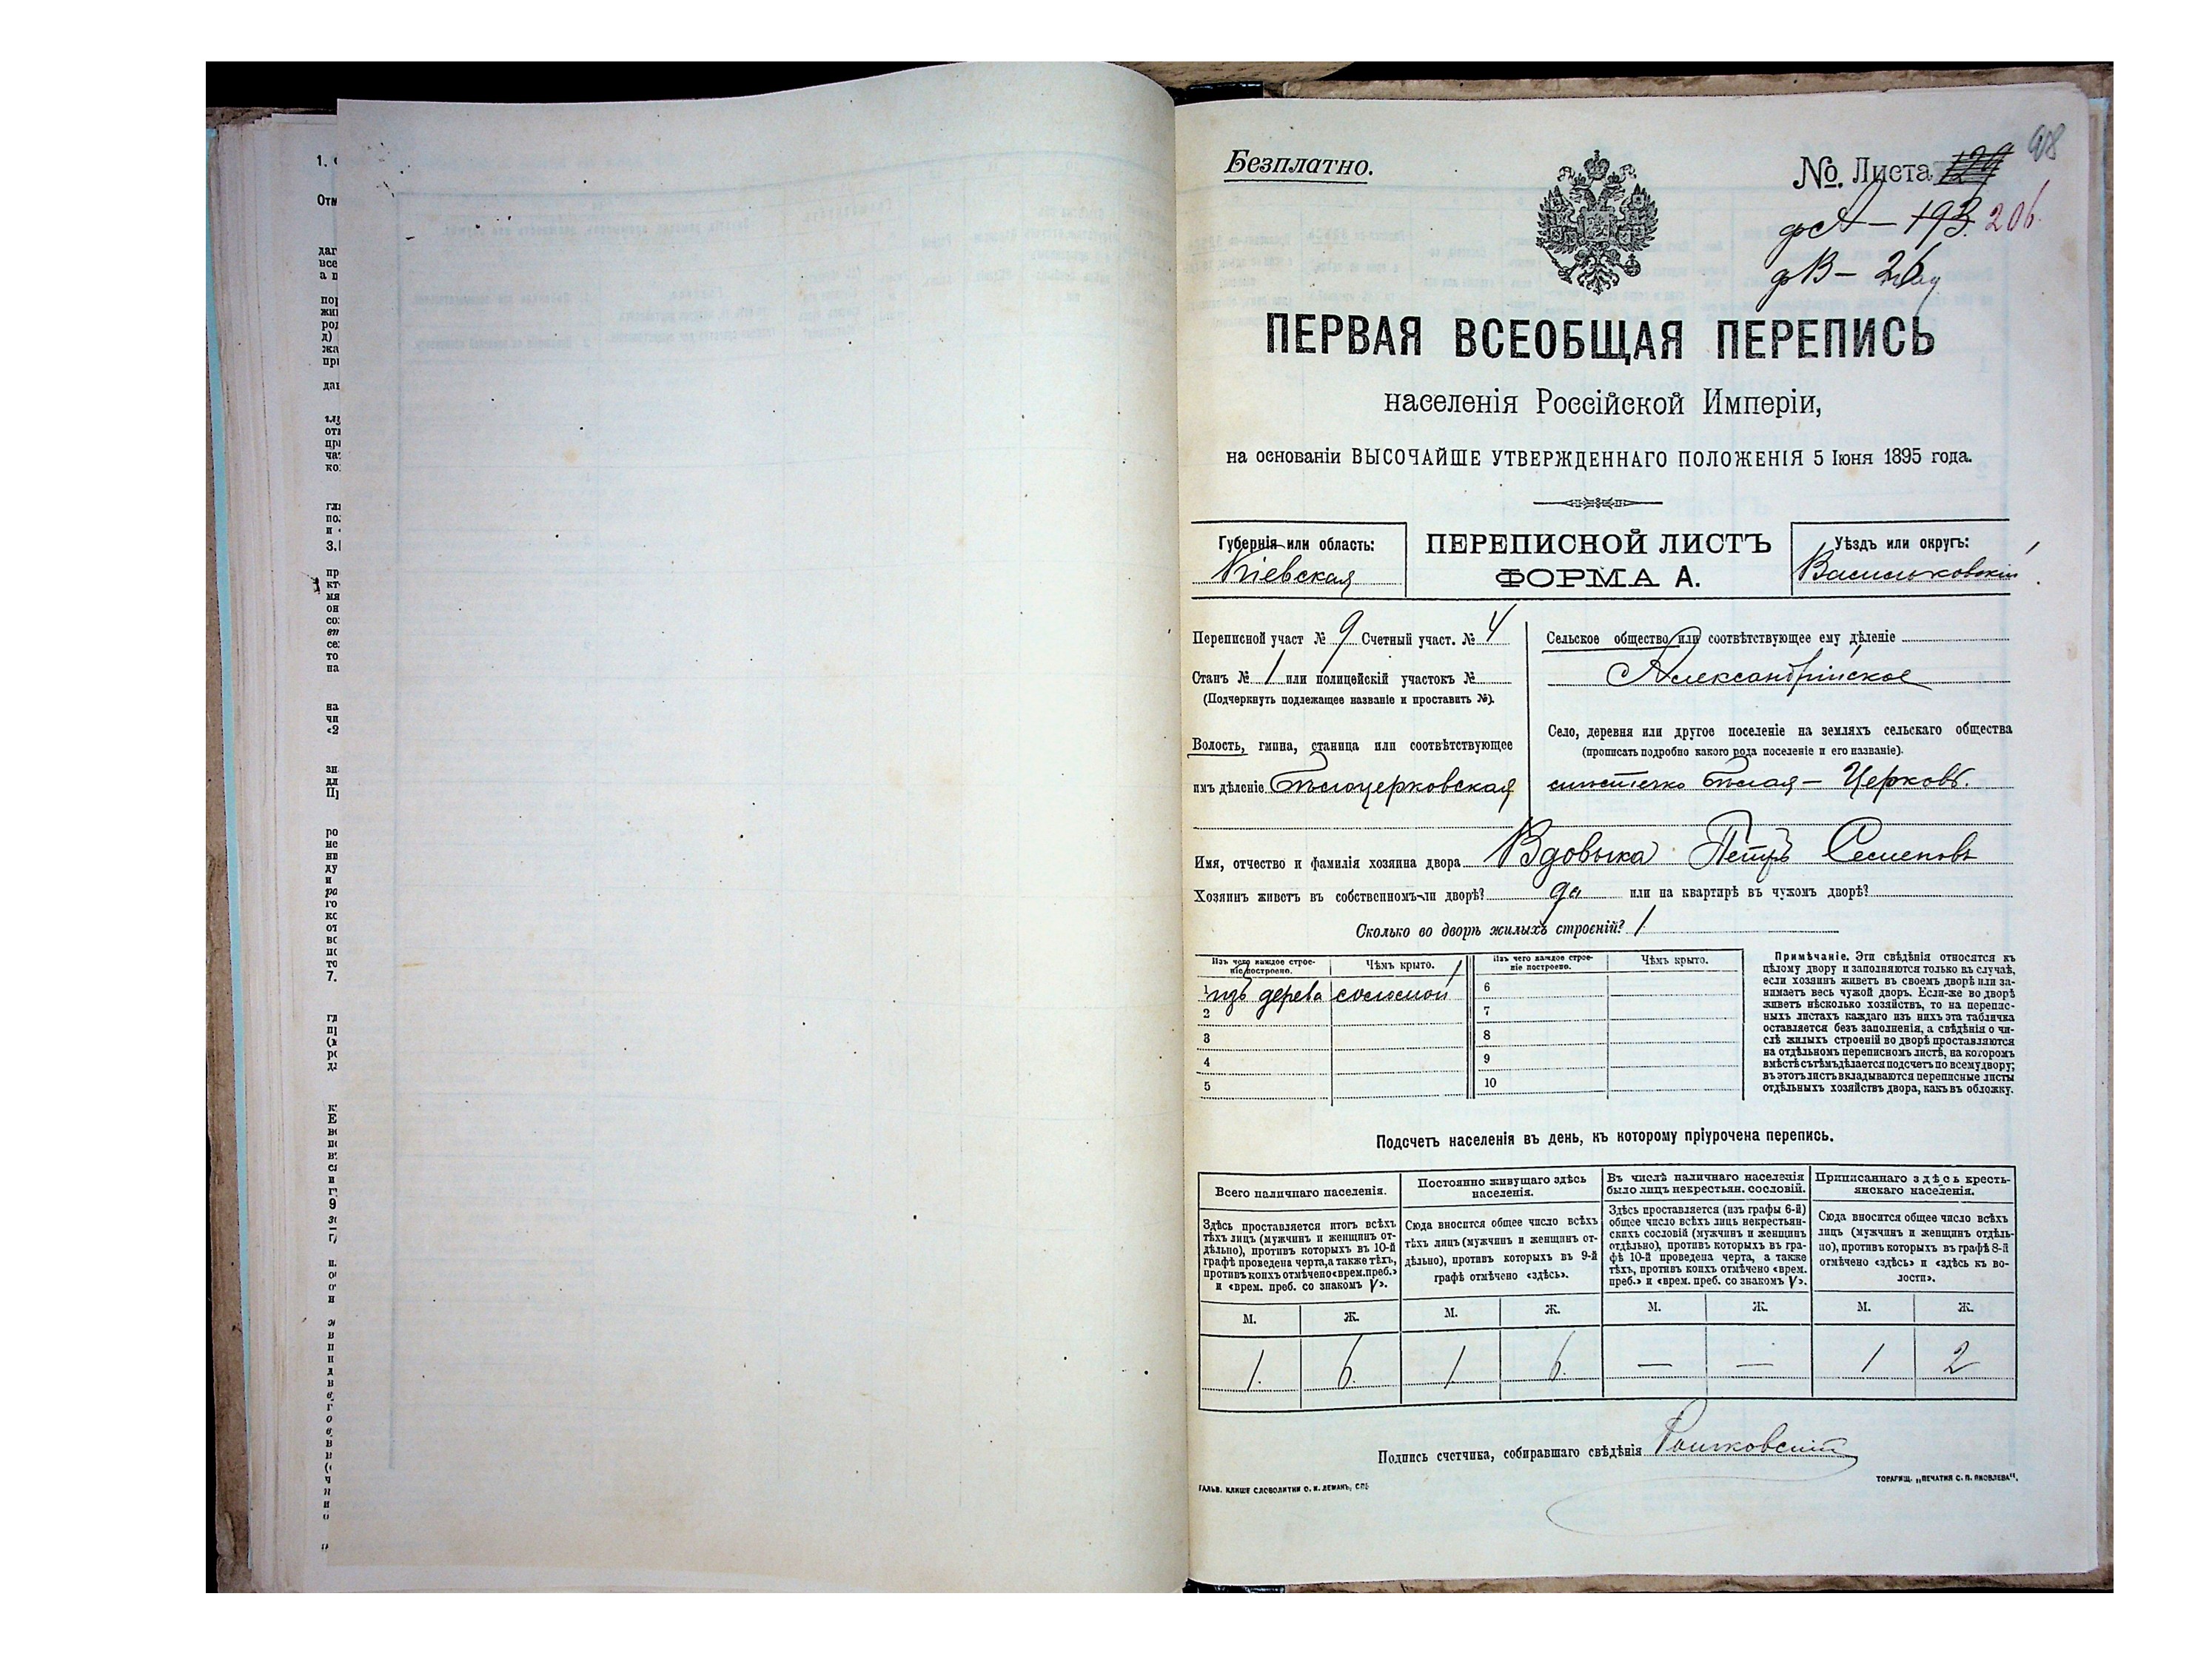 98
Безплатно.
№. Листа 129
фА — 193. 206.
фВ —
ПЕРВАЯ ВСЕОБЩАЯ ПЕРЕПИСЬ
населенія Россійской Имперіи,
на основаніи ВЫСОЧАЙШЕ УТВЕРЖДЕННАГО ПОЛОЖЕНІЯ 5 Іюня 1895 года.
Губернія или область:
Кіевская
ПЕРЕПИСНОЙ ЛИСТЪ
ФОРМА А.
Уѣздъ или округъ:
Васильковскій
Переписной участ № 9 Счетный участ. № 4
Станъ № 1 или полицейскій участокъ №
(Подчеркнуть подлежащее названіе и проставить №).
Волость, гмина, станица или соотвѣтствующее
имъ дѣленіе Бѣлоцерковская
Сельское общество или соотвѣтствующее ему дѣленіе
Александрійское
Село, деревня или другое поселеніе на земляхъ сельскаго общества
(прописать подробно какого рода поселеніе и его названіе).
мѣстечко Бѣлая — Церковь.
Имя, отчество и фамилія хозяина двора Вдовыка Петръ Семеновъ
Хозяинъ живетъ въ собственномъ-ли дворѣ? да или на квартирѣ въ чужомъ дворѣ?
Сколько во дворѣ жилыхъ строеній? 1
Изъ чего каждое строе-
ніе построено.
Чѣмъ крыто.
Изъ чего каждое строе-
ніе построено.
Чѣмъ крыто.
1 изъ дерева соломой
2
3
4
5
6
7
8
9
10
Примѣчаніе. Эти свѣдѣнія относятся къ
цѣлому двору и заполняются только въ случаѣ,
если хозяинъ живетъ въ своемъ дворѣ или за-
нимаетъ весь чужой дворъ. Если-же во дворѣ
живетъ нѣсколько хозяйствъ, то на перепис-
ныхъ листахъ каждаго изъ нихъ эта табличка
оставляется безъ заполненія, а свѣдѣнія о чи-
слѣ жилыхъ строеній во дворѣ проставляются
на отдѣльномъ переписномъ листѣ, на которомъ
вмѣстѣ съ тѣмъ дѣлается подсчетъ по всему двору;
въ этотъ листъ вкладываются переписные листы
отдѣльныхъ хозяйствъ двора, какъ въ обложку.
Подсчетъ населенія въ день, къ которому пріурочена перепись.
Всего наличнаго населенія.
Здѣсь проставляется итогъ всѣхъ
тѣхъ лицъ (мужчинъ и женщинъ от-
дѣльно), противъ которыхъ въ 10-й
графѣ проведена черта, а также тѣхъ,
противъ коихъ отмѣчено «врем. преб.»
и «врем. преб. со знакомъ V».
Постоянно живущаго здѣсь
населенія.
Сюда вносится общее число всѣхъ
тѣхъ лицъ (мужчинъ и женщинъ от-
дѣльно), противъ которыхъ въ 9-й
графѣ отмѣчено «здѣсь».
Въ числѣ наличнаго населенія
было лицъ некрестьян. сословій.
Здѣсь проставляется (изъ графы 6-й)
общее число всѣхъ лицъ некрестьян-
скихъ сословій (мужчинъ и женщинъ
отдѣльно), противъ которыхъ въ гра-
фѣ 10-й проведена черта, а также
тѣхъ, противъ коихъ отмѣчено «врем.
преб.» и «врем. преб. со знакомъ V».
Приписаннаго здѣсь кресть-
янскаго населенія.
Сюда вносится общее число всѣхъ
лицъ (мужчинъ и женщинъ отдѣль-
но), противъ которыхъ въ графѣ 8-й
отмѣчено «здѣсь» и «здѣсь къ во-
лости».
М. Ж. М. Ж. М. Ж. М. Ж.
1. 6. 1 6. — — 1 2
Подпись счетчика, собиравшаго свѣдѣнія
ГАЛЬВ. КЛИШЕ СЛОВОЛИТНИ О. И. ЛЕМАНЪ, СПБ
ТОВАРИЩ. „ПЕЧАТНЯ С. П. ЯКОВЛЕВА“,